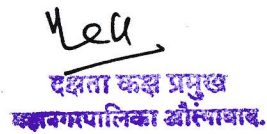 दक्षता कक्ष प्रमुख
महानगरपालिका औरंगाबाद.